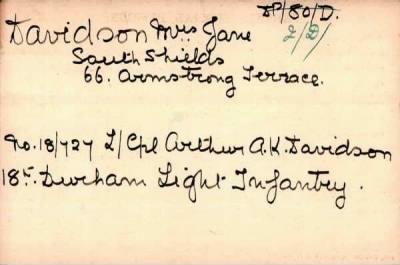 DP/80/D.
2/D/
Davidson Mrs Jane
South Shields
66. Armstrong Terrace.
No. 18/727 L/Cpl Arthur A.K. Davidson
18th. Durham Light Infantry.